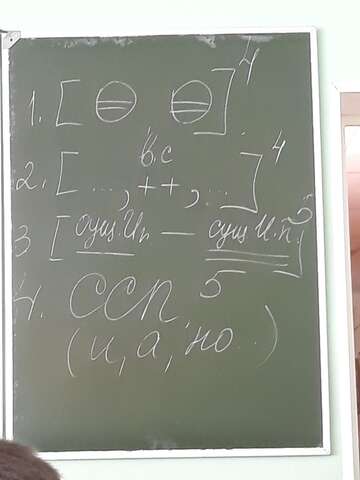 1. [ ]4
в.с
2. [ ..., ++, ... ]4
3 [ сущ. И.п — сущ И.п. ]5
4. ССП 5
(и, а, но..)